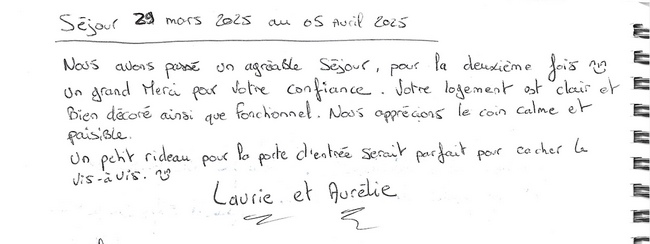 Séjour 29 mars 2025 au 05 Avril 2025
Nous avons passé un agréable Séjour, pour la deuxième fois
un grand Merci pour Votre confiance. Votre logement est clair et
Bien décoré ainsi que fonctionnel. Nous apprécions le coin calme et
paisible.
Un petit rideau pour la porte d'entrée serait parfait pour cacher le
Vis-à-Vis.
Laurie et Aurélie